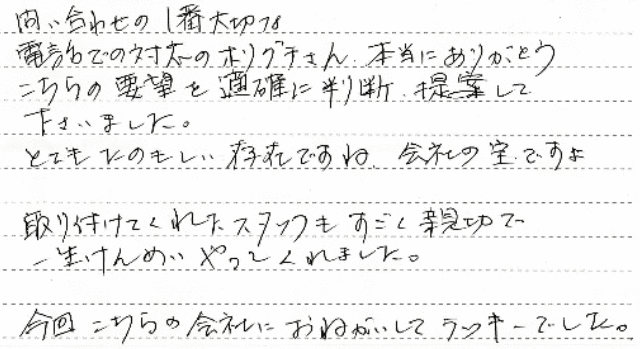 問い合わせの1番大切な
電話での対応のホリグチさん、本当にありがとう
こちらの要望を適確に判断、提案して
下さいました。
とてもたのもしい存在ですね、会社の宝ですよ
取り付けてくれたスタッフもすごく親切で
一生けんめいやってくれました。
今回こちらの会社におねがいしてラッキーでした。